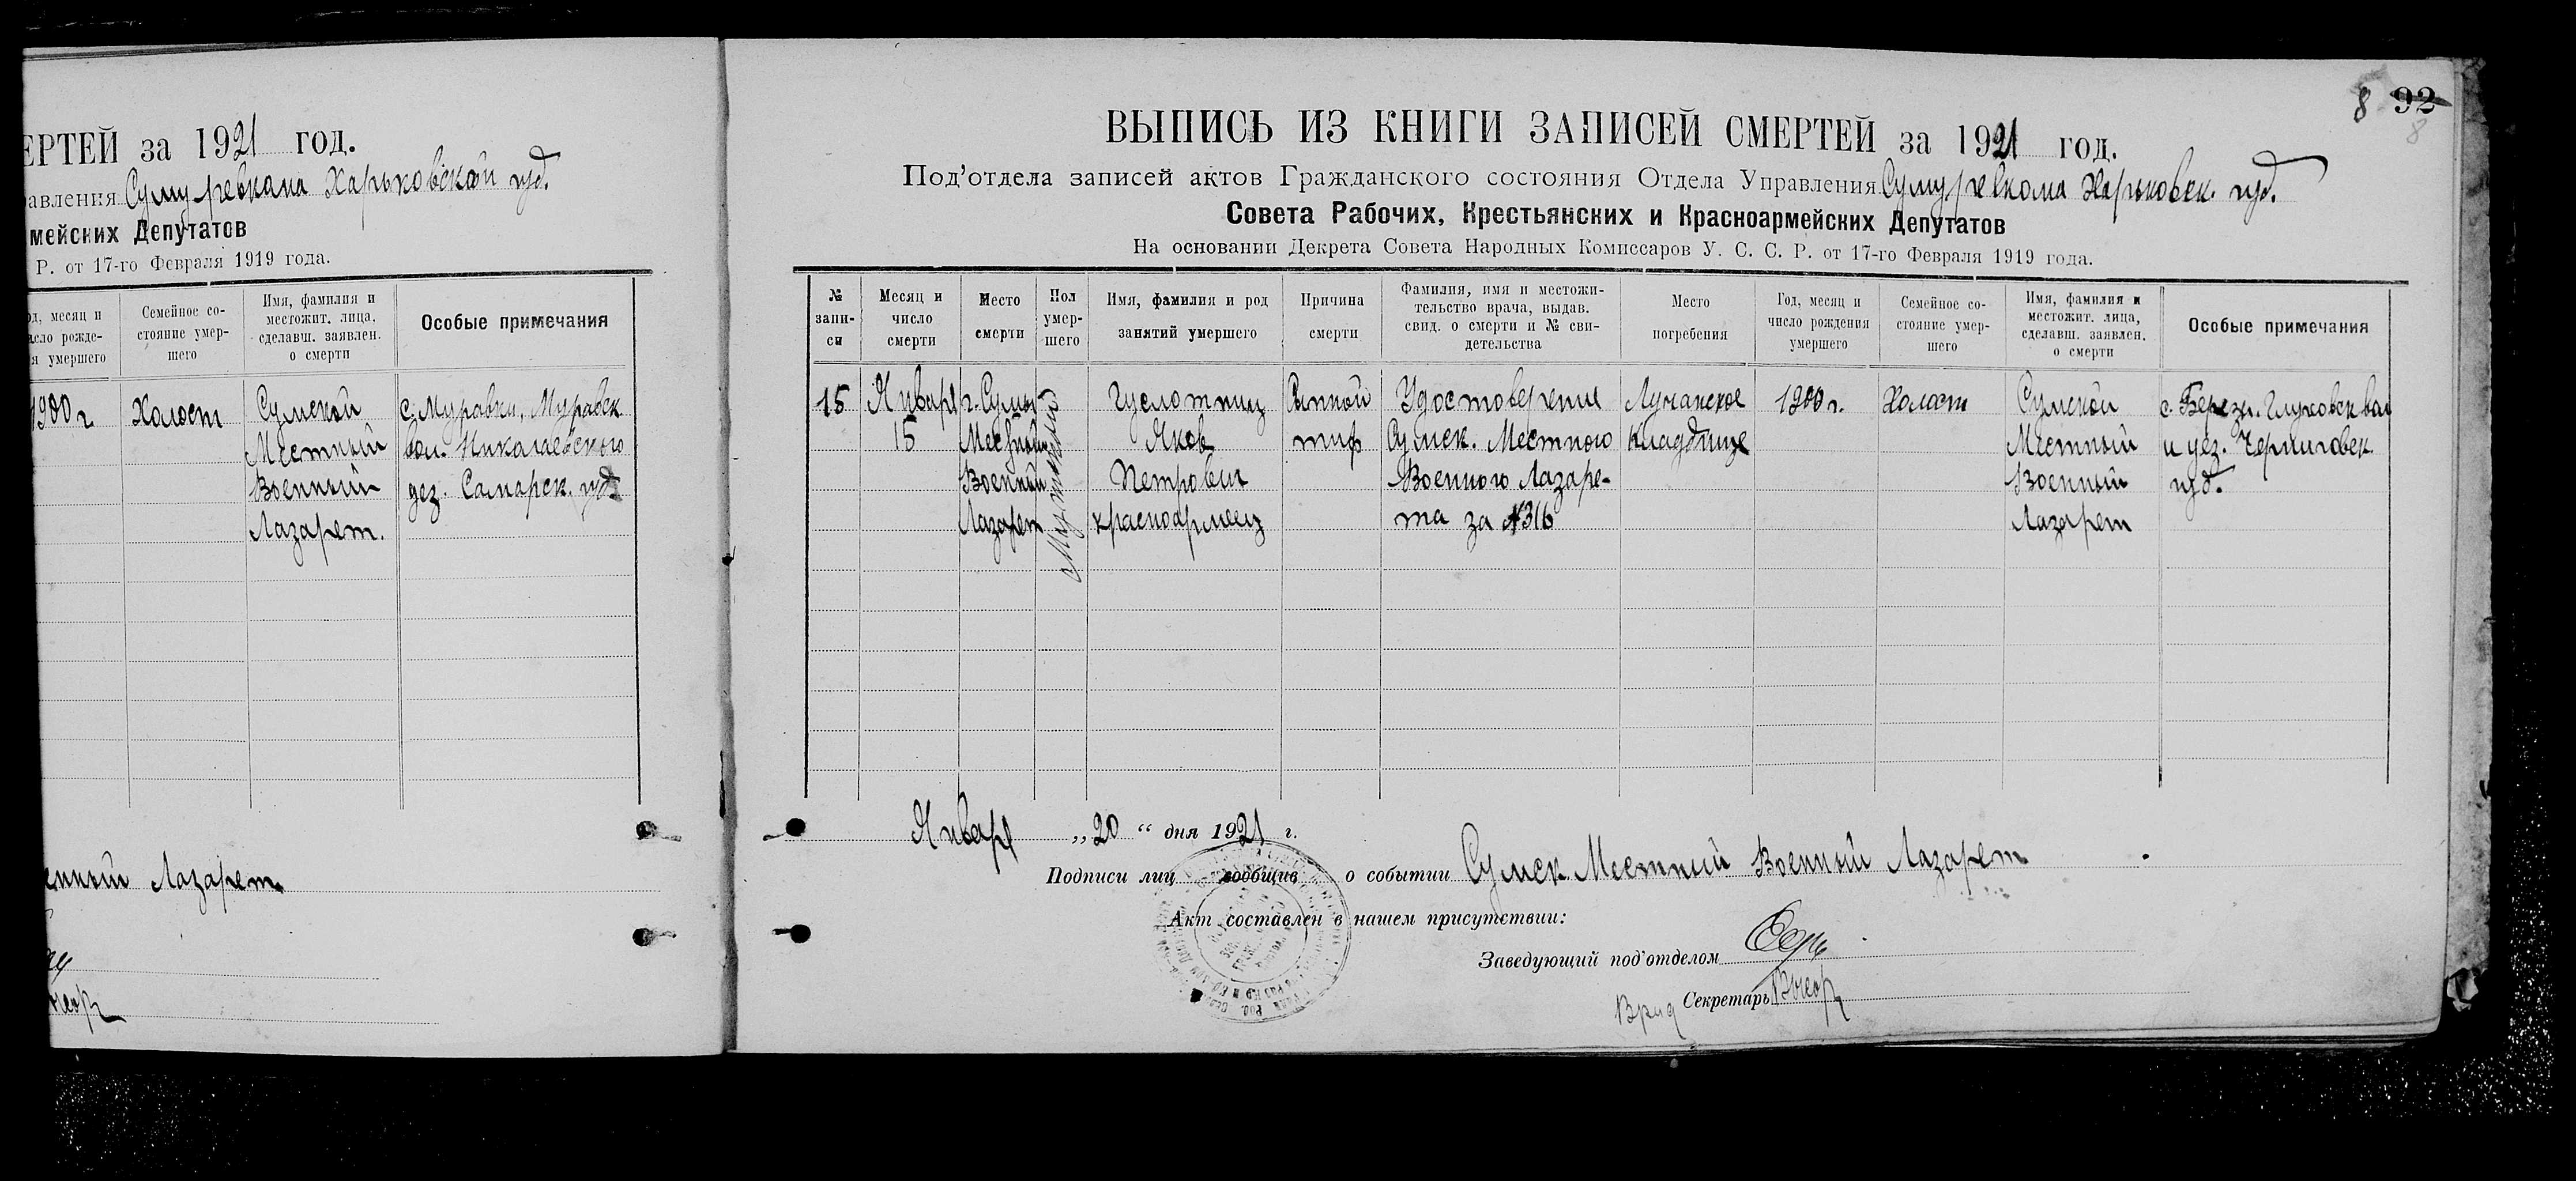 ЕРТЕЙ за 1921 год.
авления Сумуревкома Харьковской губ.
мейских Депутатов
Р. от 17-го Февраля 1919 года.
од, месяц и
исло рожде-
я умершего
Семейное со-
стояние умер-
шего
Имя, фамилия и
местожит. лица,
сделавш. заявлен.
о смерти
Особые примечания
1900 г.
Холост
Сумской
Местный
Военный
Лазарет.
с. Муравки, Муравск
вол. Николаевского
уез. Самарск. губ.
енный Лазарет
8 92
8
ВЫПИСЬ ИЗ КНИГИ ЗАПИСЕЙ СМЕРТЕЙ за 1921 год.
Под'отдела записей актов Гражданского состояния Отдела Управления Сумуревкома Харьковск. губ.
Совета Рабочих, Крестьянских и Красноармейских Депутатов
На основании Декрета Совета Народных Комиссаров У. С. С. Р. от 17-го Февраля 1919 года.
№
запи-
си
Месяц и
число
смерти
Место
смерти
Пол
умер-
шего
Имя, фамилия и род
занятий умершего
Причина
смерти
Фамилия, имя и местожи-
тельство врача, выдав.
свид. о смерти и № сви-
детельства
Место
погребения
Год, месяц и
число рождения
умершего
Семейное со-
стояние умер-
шего
Имя, фамилия и
местожит. лица,
сделавш. заявлен.
о смерти
Особые примечания
15
Января
15
г. Сумы
Местный
Военный
Лазарет
Мужской
Яков
Петрович
красноармеец
Сыпной
тиф
Удостоверение
Сумск. Местного
Военного Лазаре-
та за №316
Лучанское
кладбище
1900 г.
Холост
Сумской
Местный
Военный
Лазарет
с. Березы. Глуховск вол
и уез. Черниговск.
губ.
Января „20“ дня 1921 г.
Подписи лиц сообщив о событии Сумск. Местный Военный Лазарет
Акт составлен в нашем присутствии:
Заведующий под'отделом
Врид Секретарь